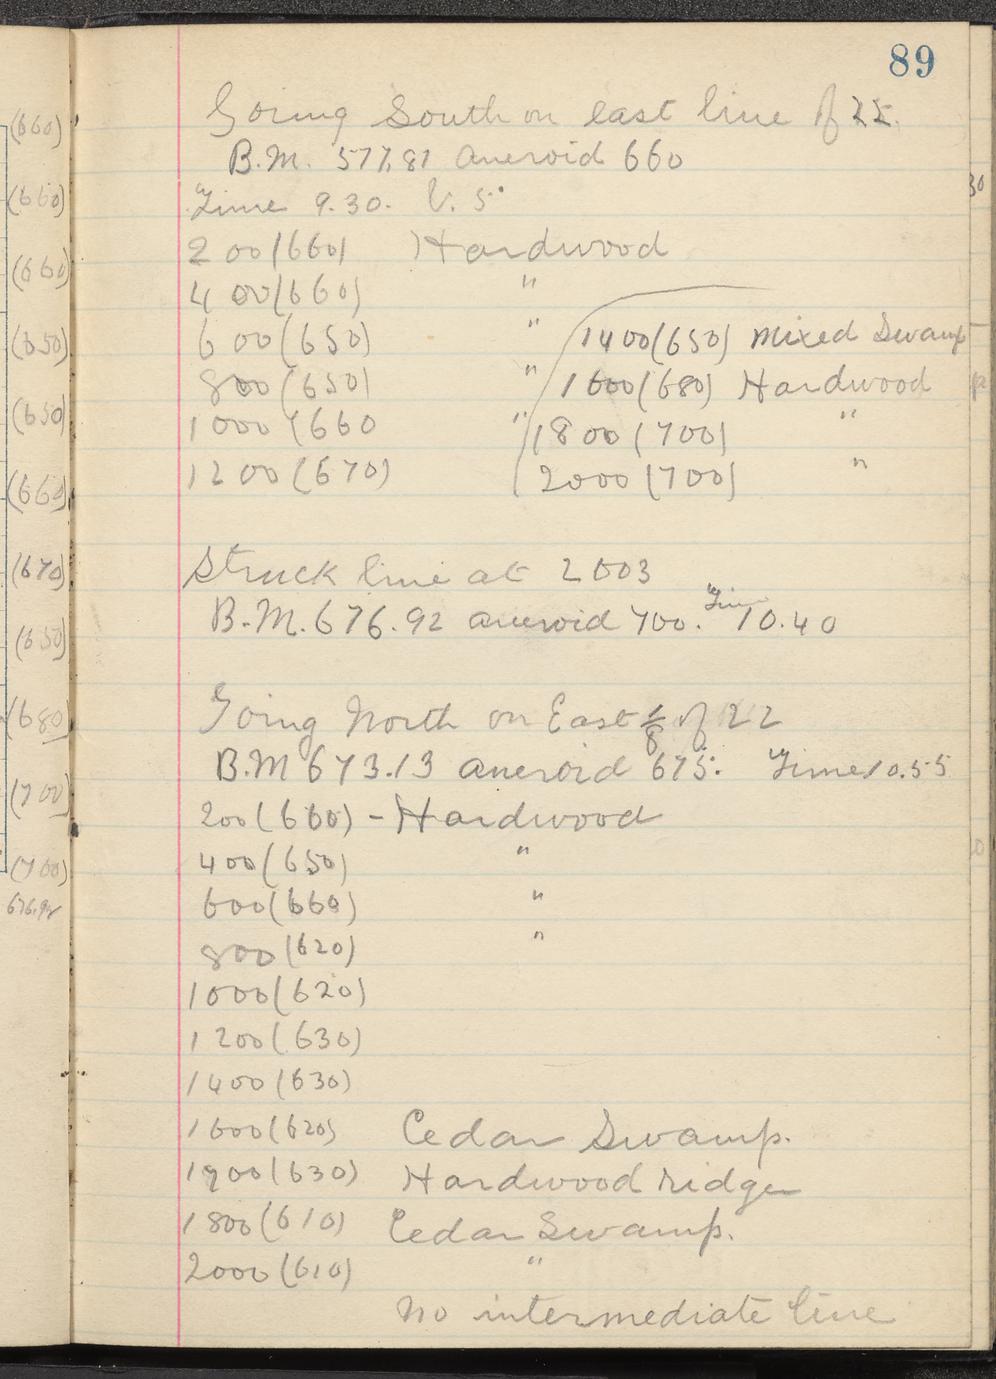 89
Going South on east line of 22.
B.M. 577.81 aneroid 660
Time 9.30. V. S.
200 (660) Hardwood
400 (660) "
600 (650) "
800 (650) "
1000 (660 "
1200 (670)
1400 (650) Mixed Swamp
1600 (680) Hardwood
1800 (700) "
2000 (700) "
Struck line at 2003
B.M. 676.92 aneroid 700. Time 10.40
Going North on East 1/8 of 22
B.M 673.13 aneroid 675. Time 10.55
200 (660) - Hardwood
400 (650) "
600 (660) "
800 (620) "
1000 (620)
1200 (630)
1400 (630)
1600 (620) Cedar Swamp.
1700 (630) Hardwood ridge
1800 (610) Cedar Swamp.
2000 (610) "
No intermediate line
(660)
(660)
(660)
(650)
(650)
(660)
(670)
(650)
(680)
(700)
(700)
676.92